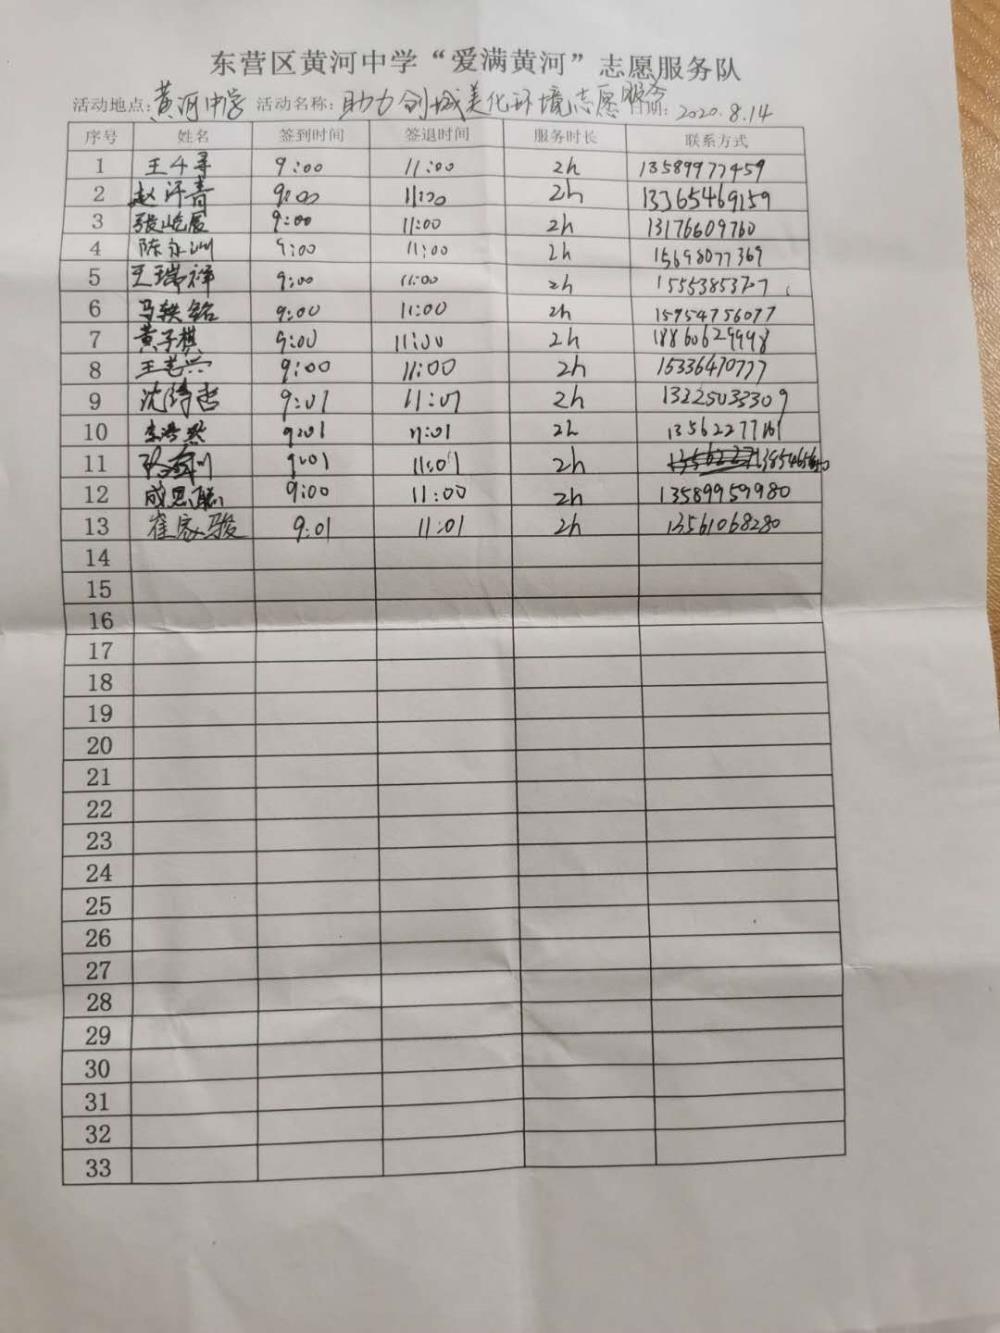 东营区黄河中学“爱满黄河”志愿服务队
活动地点:黄河中学 活动名称:助力创城美化环境志愿服务 日期:2020.8.14
序号 姓名 签到时间 签退时间 服务时长 联系方式
1 王千寻 9:00 11:00 2h 13589977459
2 赵汗青 9:00 11:00 2h 13365469159
3 张屹宸 9:00 11:00 2h 13176609760
4 陈永洲 9:00 11:00 2h 15698077369
5 王瑞祥 9:00 11:00 2h
6 马轶铭 9:00 11:00 2h 15954756077
7 黄子棋 9:00 11:00 2h 18860629998
8 王艺兴 9:00 11:00 2h 15336470777
9 沈绮哲 9:01 11:01 2h 13225033309
10 李浩然 9:01 11:01 2h
11 9:01 11:01 2h
12 成思聪 9:00 11:00 2h 13589959980
13 崔家骏 9:01 11:01 2h 13561068280
14
15
16
17
18
19
20
21
22
23
24
25
26
27
28
29
30
31
32
33